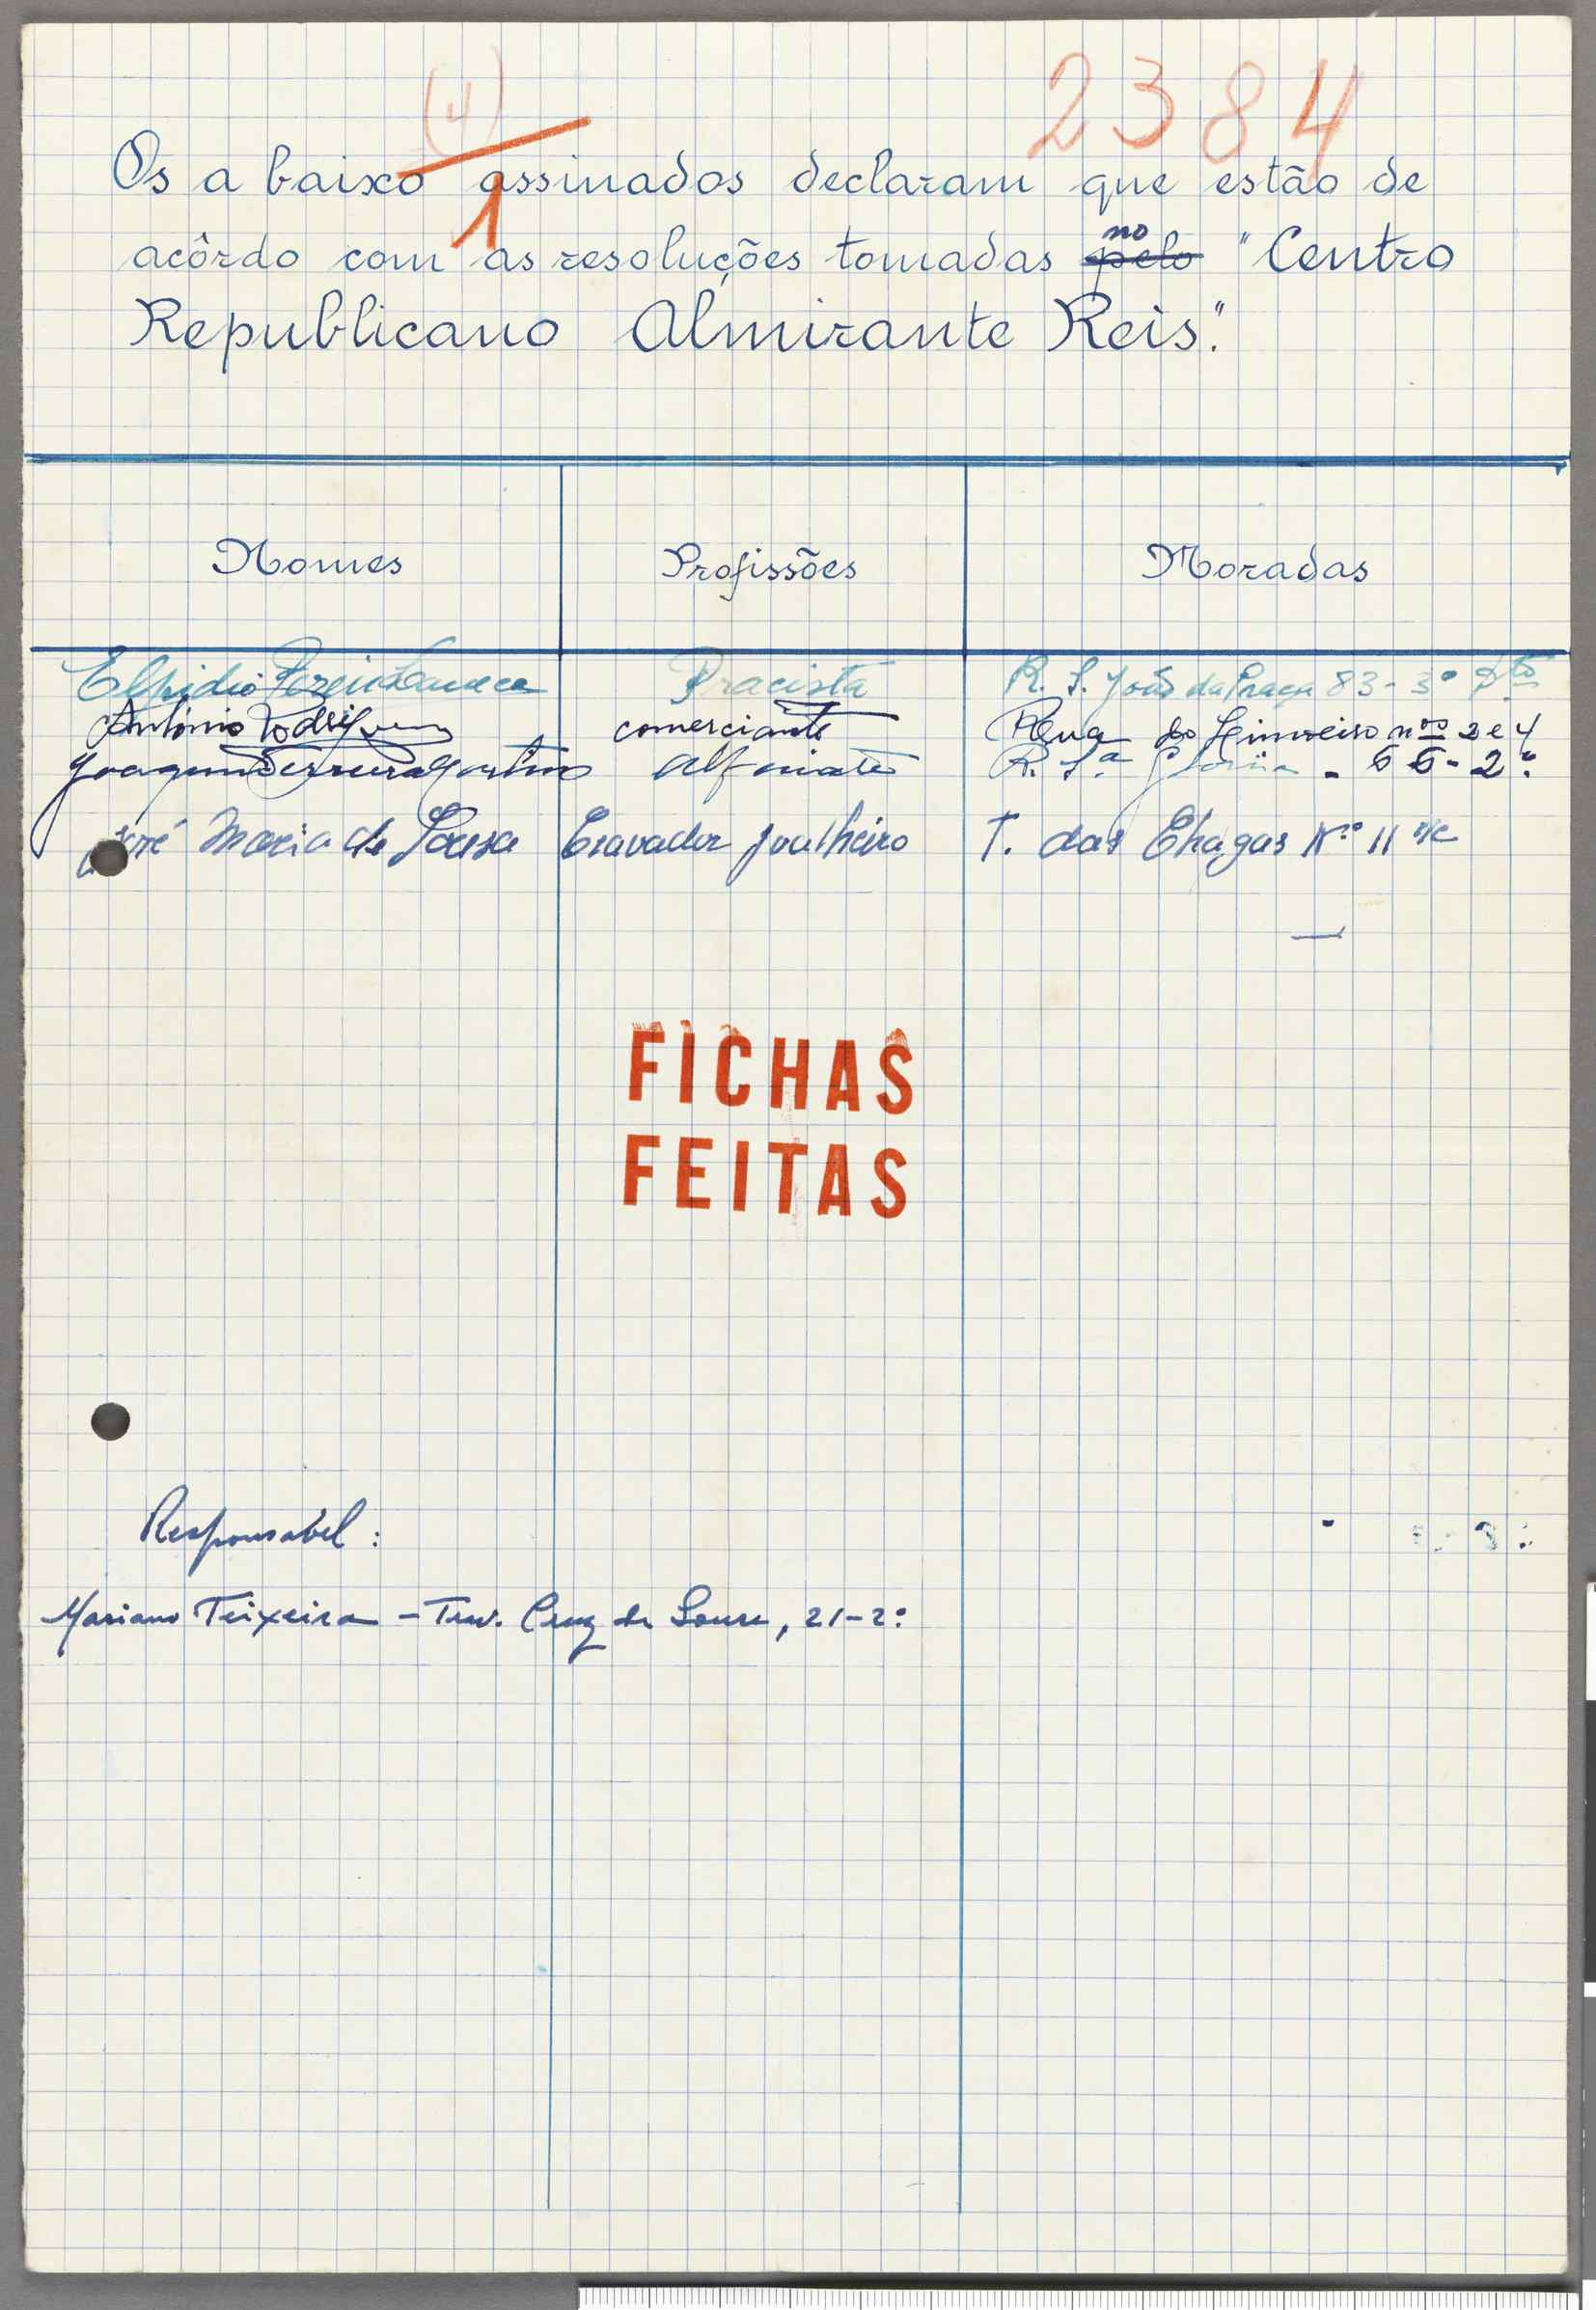 (4)
2384
1
Os a baixo assinados declaram que estão de
acôrdo com as resoluções tomadas pelo no "Centro
Republicano Almirante Reis".
Nomes Profissões Moradas
Elpidio Pracista R. S. João da Praça 83-3º Dto
António Rodrigues comerciante Rua do Limoeiro nos 2 e 4
Joaquim Ferreira Martins Alfaiate R. S.ª Glória - 66-2º
José Maria de Sousa Cravador Joalheiro T. das Chagas Nº 11 r/c
FICHAS
FEITAS
Responsabel:
Mariano Teixeira - Trav. Cruz de Soure, 21-2º